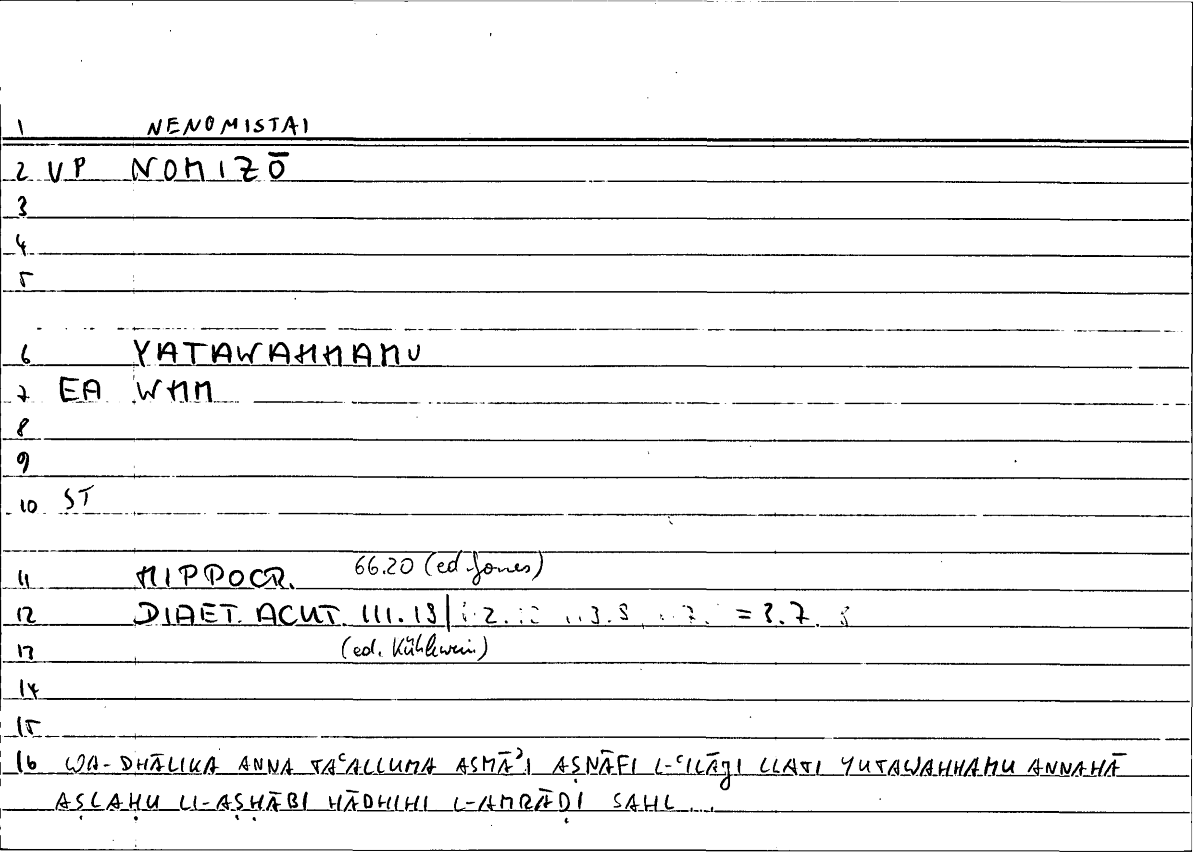 1 NENOMISTAI
2 VP NOMIZŌ
3
4
5
6 YATAWAHHAMU
7 EA WHM
8
9
10 ST
11 HIPPOCR. 66.20 (ed. Jones)
12 DIAET. ACUT. III.18 = 3.7.
13 (ed. Kühlewein)
14
15
16 WA-DHĀLIKA ANNA TAʿALLUMA ASMĀʾI AṢNĀFI L-ʿILĀJI LLATI YUTAWAHHAMU ANNAHĀ
AṢLAḤU LI-AṢḤĀBI HĀDHIHI L-AMRĀḌI SAHL...